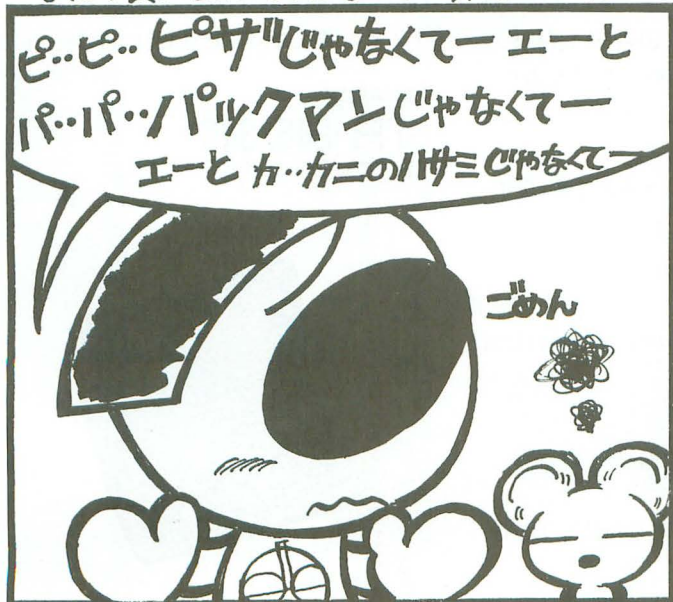 ピ‥ピ‥ピザじゃなくてーエーと
パ‥パ‥パックマンじゃなくてー
エーとカ‥カニのハサミじゃなくてー
ごめん